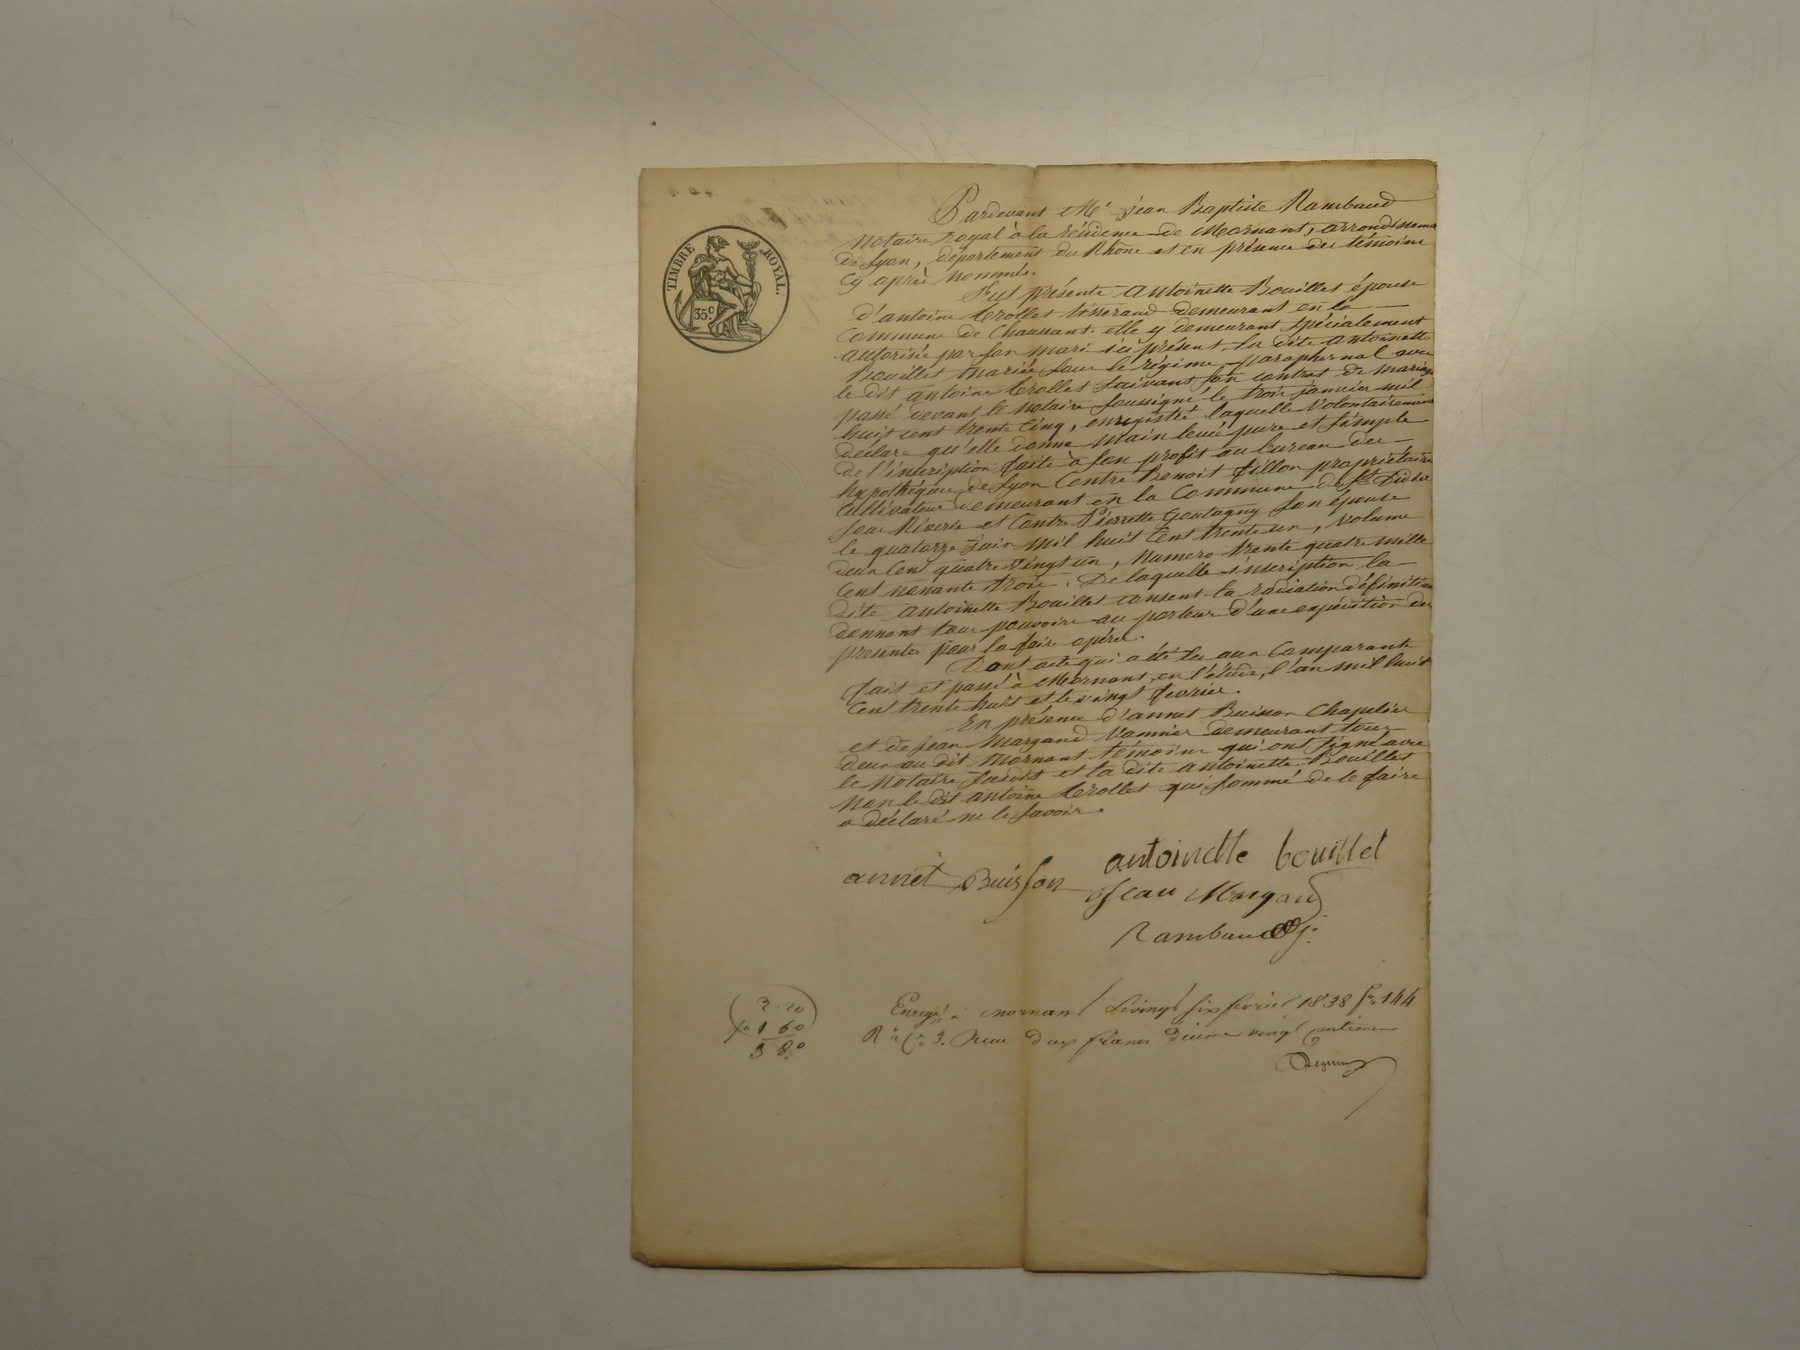 TIMBRE ROYAL.
35.c
Pardevant Me jean Baptiste Rambaud
Notaire royal à la résidence de Mornant, arrondissement
de Lyon, département du Rhône et en présence des témoins
cy après nommés.
Fut présente antoinette Bouillet épouse
d'antoine Crollet tisserand demeurant en la
Commune de Chaussant elle y demeurant spécialement
autorisée par son mari ici présent, la dite antoinette
Bouillet mariée sous le régime paraphernal avec
le dit antoine Crollet suivant son contrat de mariage
passé devant le notaire soussigné le trois janvier mil
huit cent trente cinq, enregistré laquelle volontairement
déclare qu'elle donne main levée pure et simple
de l'inscription faite à son profit au bureau des
hypothéques de Lyon Contre Benoit fillon propriétaire
Cultivateur demeurant en la Commune de St Didier
sous Riverie et Contre Pierrette Goutagny son épouse
le quatorze juin mil huit Cent trente un, volume
deux Cent quatre vingt un, Numero trente quatre mille
Cent nonante trois. De laquelle inscription la
dite antoinette Bouillet consent la radiation définitive
donnant tous pouvoirs au porteur d'une expédition des
presentes pour la faire opérer.
Dont acte qui a été lu aux Comparants
fait et passé à Mornant, en l'étude, l'an mil huit
Cent trente huit et le vingt fevrier.
En présence d'annet Buisson Chapelier
et de Jean Margand Vannier demeurant tous
deux au dit Mornant témoins qui ont signé avec
le Notaire susdit et la dite antoinette Bouillet
Non le dit antoine Crollet qui sommé de le faire
a déclaré ne le savoir.
antoinette bouillet
annet Buisson
Jean Margand
Rambaud
2.20
1 60
3 80
Enregé à mornant le vingt six fevrier 1838 fo 144
Ro Ce 3. Reçu deux francs dixme vingt centimes